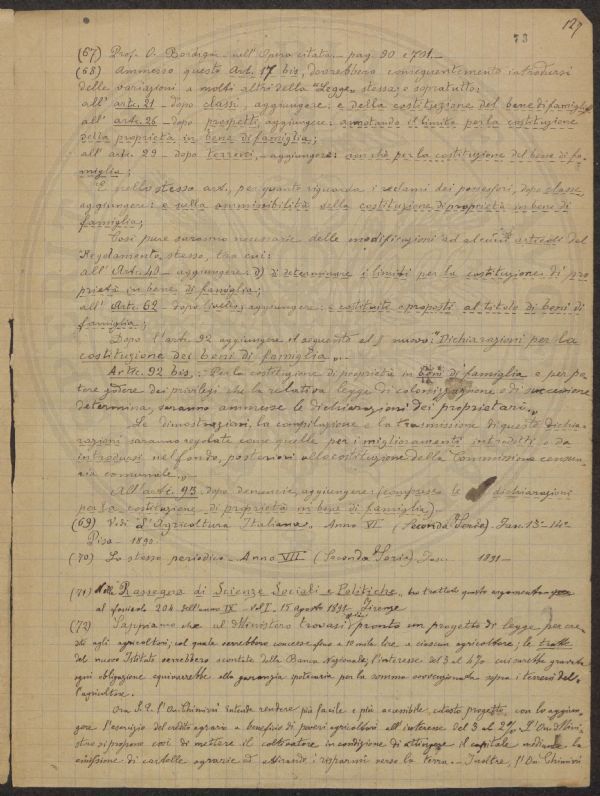 127
73
(67) Prof. O. Bordiga - nell'Opera citata - pag. 90 e 701.-
(68) Ammesso questo Art. 17 bis, dovrebbero conseguentemente introdursi
delle variazioni a molti altri della "Legge" stessa e sopratutto:
all' artic. 21 - dopo classi, aggiungere: e della costituzione del bene di famiglia;
all' artic. 26 - dopo prospetti, aggiungere: annotando il limite per la costituzione
della proprietà in bene di famiglia;
all' artic. 29 - dopo terreni, - aggiungere: anche per la costituzione del bene di fa-
miglia;
E nello stesso art., per quanto riguarda i reclami dei possessori, dopo classe,
aggiungere: e sulla ammissibilità della costituzione di proprietà in bene di
famiglia;
Così pure saranno necessarie delle modificazioni ad alcuni articoli del
Regolamento stesso, tra cui:
all' Artic. 40 - aggiungere: d) di determinare i limiti per la costituzione di pro
prietà in bene di famiglia;
all' Artic. 62 - dopo aggiungere: e costituiti o proposti al titolo di beni di
famiglia;
Dopo l'artic. 92 aggiungere il seguente ed § nuovo: "Dichiarazioni per la
costituzione dei beni di famiglia".-
Artic. 92 bis.: Per la costituzione di proprietà in beni di famiglia e per po
tere godere dei privilegi che la relativa legge di colonizzazione o di successione
determina, saranno ammesse le dichiarazioni dei proprietari.
Le dimostrazioni, la compilazione e la trasmissione di queste dichia-
razioni saranno regolate come quelle per i miglioramenti introdotti o da
introdursi nel fondo, posteriori alla costituzione della Commissione censua-
ria comunale.-
All' artic. 93 dopo denuncie, aggiungere: (comprese le dichiarazioni
per la costituzione di proprietà in bene di famiglia)
(69) Vedi L'Agricoltura Italiana - Anno VI (Seconda Serie) - Fasc. 13° - 14°
Pisa - 1890.
(70) Lo stesso periodico - Anno VII (Seconda Serie) Fasc. 1891 -
(71) Nella Rassegna di Scienze Sociali e Politiche, ho trattato questo argomento
al fascicolo 204 dell'anno IX - Vol I - 15 agosto 1891 - Firenze
(72) Sappiamo che al Ministero trovasi pronto un progetto di legge per cre-
diti agli agricoltori; col quale verrebbero concesse fino a 10 mila lire a ciascun agricoltore; le tratte
del nuovo Istituto verrebbero scontate dalla Banca Nazionale; l'interesse del 3 al 4% cui sarebbe gravata
ogni obbligazione equivarrebbe alla garanzia ipotecaria per la somma sovvenzionata sopra i terreni del-
l'agricoltore.
Ora S.E. l'On. Chimirri intende rendere più facile e più accessibile codesto progetto, con lo aggiun-
gere l'esercizio del credito agrario a beneficio di poveri agricoltori all'interesse del 3 al 2%. L'On. Mini-
stro si propone così di mettere il coltivatore in condizione di attingere il capitale mediante la
emissione di cartelle agrarie ed attirando i risparmi verso la terra. - Inoltre l'On. Chimirri